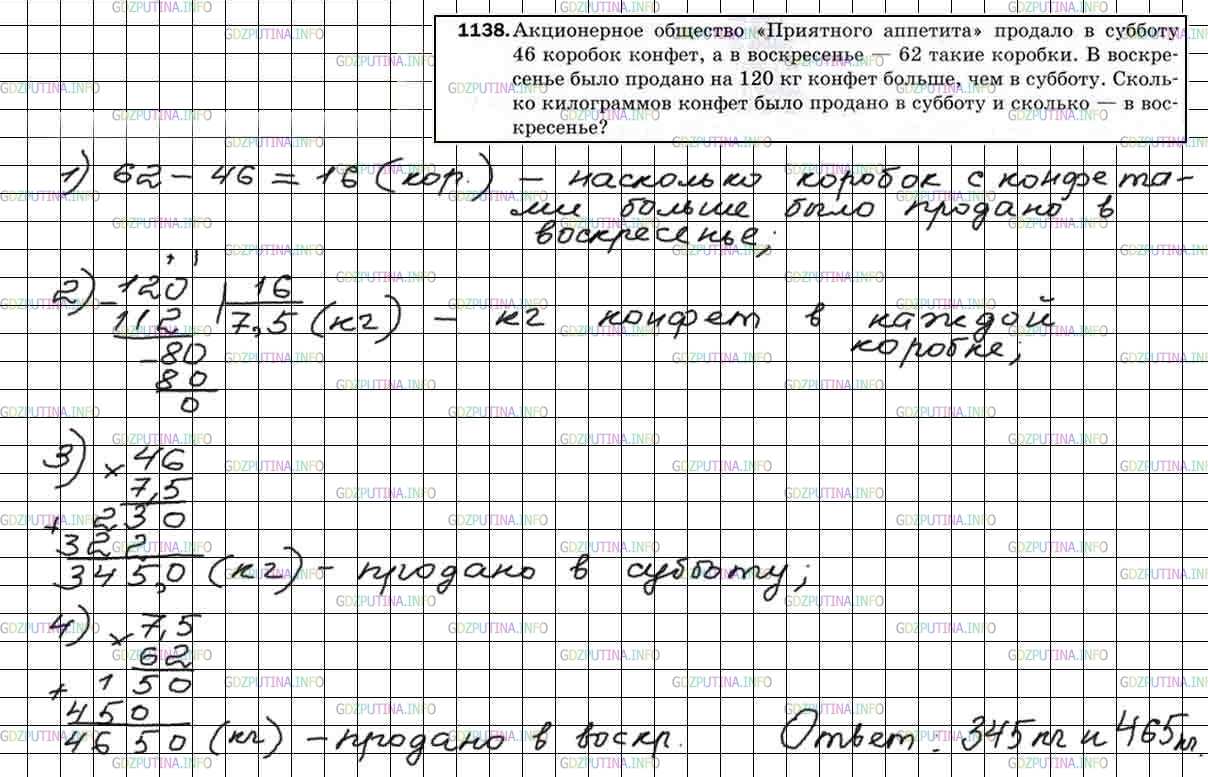 1138. Акционерное общество «Приятного аппетита» продало в субботу
46 коробок конфет, а в воскресенье — 62 такие коробки. В воскре-
сенье было продано на 120 кг конфет больше, чем в субботу. Сколь-
ко килограммов конфет было продано в субботу и сколько — в вос-
кресенье?
1) 62 - 46 = 16 (кор.) - насколько коробок с конфета-
ми больше было продано в
воскресенье;
2) - 120 | 16
112 | 7,5 (кг) - кг конфет в каждой
коробке;
- 80
80
0
3) × 46
7,5
+ 230
322
345,0 (кг) - продано в субботу;
4) × 7,5
62
+ 150
450
4650 (кг) - продано в воскр.
Ответ: 345 кг и 465 кг.
GDZPUTINA.INFO